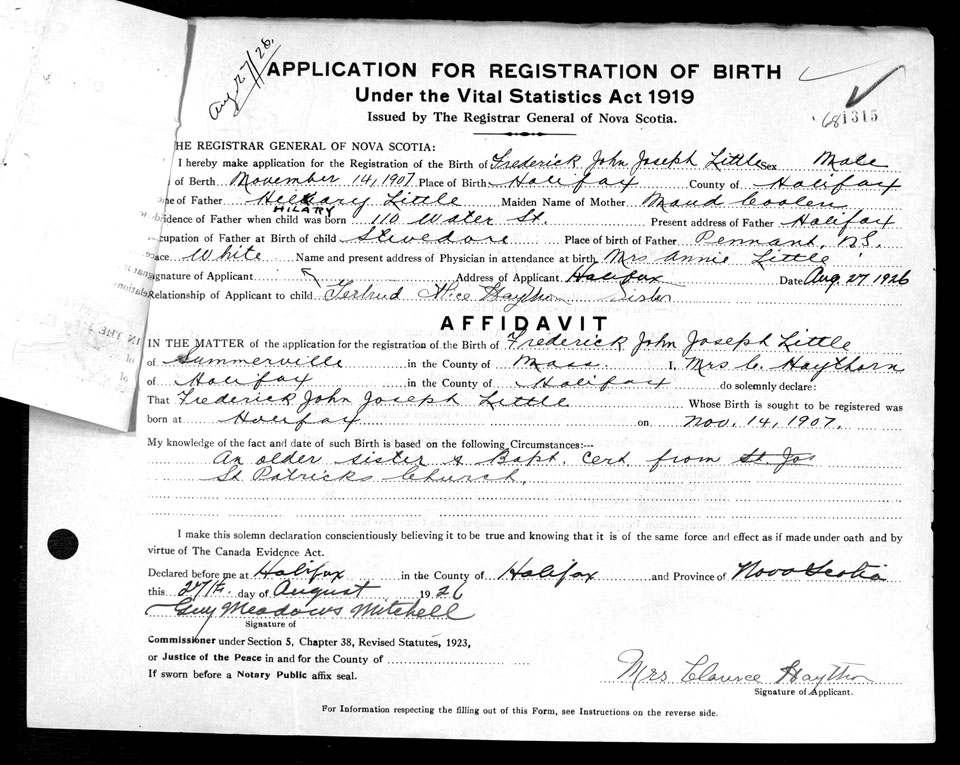 Aug 27/26.
APPLICATION FOR REGISTRATION OF BIRTH
Under the Vital Statistics Act 1919
Issued by The Registrar General of Nova Scotia.
681315
HE REGISTRAR GENERAL OF NOVA SCOTIA:
I hereby make application for the Registration of the Birth of Frederick John Joseph Little Sex Male
of Berth November 14, 1907 Place of Birth Halifax County of Halifax
of Father Hillary Little Maiden Name of Mother Maud Coolen
HILARY
idence of Father when child was born 110 Water St. Present address of Father Halifax
cupation of Father at Birth of child Stevedore Place of birth of Father Pennant, N.S.
ace White Name and present address of Physician in attendance at birth Mrs Annie Little
ignature of Applicant Address of Applicant Halifax Date Aug. 27 1926
Relationship of Applicant to child Gertrud Alice Haythorn Sister
AFFIDAVIT
IN THE MATTER of the application for the registration of the Birth of Frederick John Joseph Little
of Summerville in the County of Mass. I, Mrs C. Haythorn
of Halifax in the County of Halifax do solemnly declare:
That Frederick John Joseph Little Whose Birth is sought to be registered was
born at Halifax on Nov. 14, 1907.
My knowledge of the fact and date of such Birth is based on the following Circumstances:--
An older sister & Bapt. Cert. from St. Jos
St Patricks Church.
I make this solemn declaration conscientiously believing it to be true and knowing that it is of the same force and effect as if made under oath and by
virtue of The Canada Evidence Act.
Declared before me at Halifax in the County of Halifax and Province of Nova Scotia
this 27th. day of August 1926
Guy Meadows Mitchell
Signature of
Commissioner under Section 5, Chapter 38, Revised Statutes, 1923,
or Justice of the Peace in and for the County of
If sworn before a Notary Public affix seal.
Mrs Clarence Haythorn
Signature of Applicant.
For Information respecting the filling out of this Form, see Instructions on the reverse side.